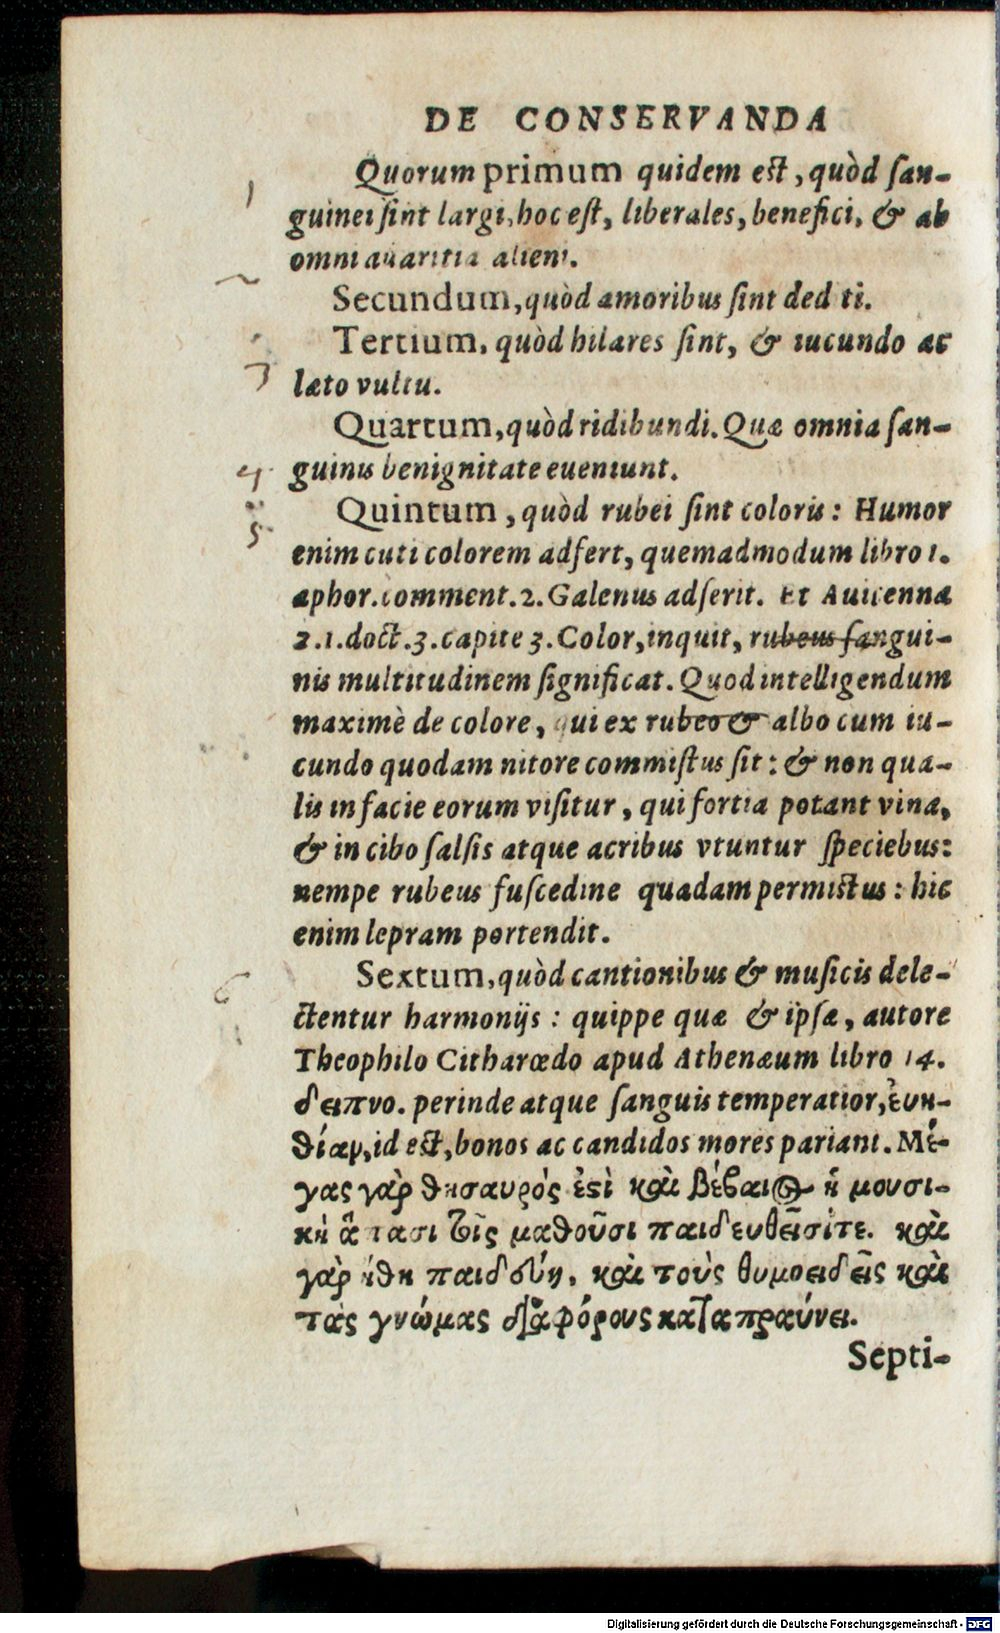 DE CONSERVANDA
Quorum primum quidem est, quòd ſan-
guinei ſint largi, hoc eſt, liberales, benefici, & ab
omni auaritia alieni.
Secundum, quòd amoribus ſint ded ti.
Tertium, quòd hilares ſint, & iucundo ac
læto vultu.
Quartum, quòd ridibundi. Quæ omnia ſan-
guinis benignitate eueniunt.
Quintum, quòd rubei ſint coloris: Humor
enim cuti colorem adfert, quemadmodum libro 1.
aphor. comment. 2. Galenus adſerit. Et Auicenna
2.1. doct. 3. capite 3. Color, inquit, rubeus ſangui-
nis multitudinem ſignificat. Quod intelligendum
maximè de colore, qui ex rubeo & albo cum iu-
cundo quodam nitore commiſtus ſit: & non qua-
lis in facie eorum viſitur, qui fortia potant vina,
& in cibo ſalſis atque acribus vtuntur ſpeciebus:
nempe rubeus fuſcedine quadam permiſtus: hic
enim lepram portendit.
Sextum, quòd cantionibus & muſicis dele-
ctentur harmonijs: quippe quæ & ipſæ, autore
Theophilo Citharœdo apud Athenæum libro 14.
δειπνο. perinde atque ſanguis temperatior, ἐυη-
θίαν, id est, bonos ac candidos mores pariant. Μέ-
γας γὰρ θησαυρός ἐςὶ καὶ βέβαιος ἡ μουσι-
κὴ ἅπασι τοῖς μαθοῦσι παιδευθεῖσίτε. καὶ
γὰρ ἤθη παιδεύη, καὶ τοὺς θυμοειδεῖς καὶ
τὰς γνώμας διαφόρους καταπραύνει.
Septi-
1
3
4
5
6
Digitalisierung gefördert durch die Deutsche Forschungsgemeinschaft - DFG